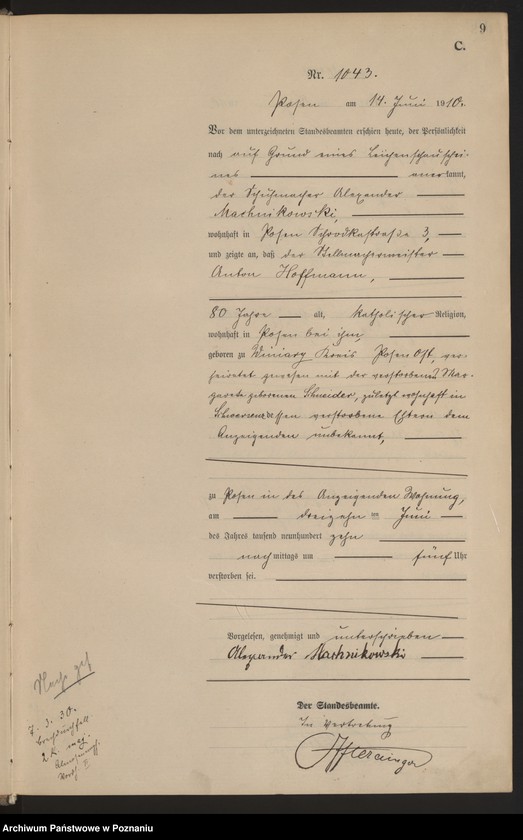 9
C.
Nr. 1043.
Posen am 14. Juni 1910.
Vor dem unterzeichneten Standesbeamten erschien heute, der Persönlichkeit
nach auf Grund eines Leichenschauschei-
nes anerkannt,
der Schuhmacher Alexander
Machnikowski,
wohnhaft in Posen Schrodkastraße 3,
und zeigte an, daß der Stellmachermeister
Anton Hoffmann,
80 Jahre alt, katholischer Religion,
wohnhaft in Posen bei ihm,
geboren zu Winiary Kreis Posen Ost, ver-
heiratet gewesen mit der verstorbenen Mar-
garete geborenen Schneider, zuletzt wohnhaft in
verstorbene Eltern dem
Anzeigenden unbekannt,
zu Posen in des Anzeigenden Wohnung,
am dreizehn ten Juni
des Jahres tausend neunhundert zehn
nachmittags um fünf Uhr
verstorben sei.
Vorgelesen, genehmigt und unterschrieben
Alexander Machnikowski
Der Standesbeamte.
In Vertretung
7. 3. 30.
2
Archiwum Państwowe w Poznaniu